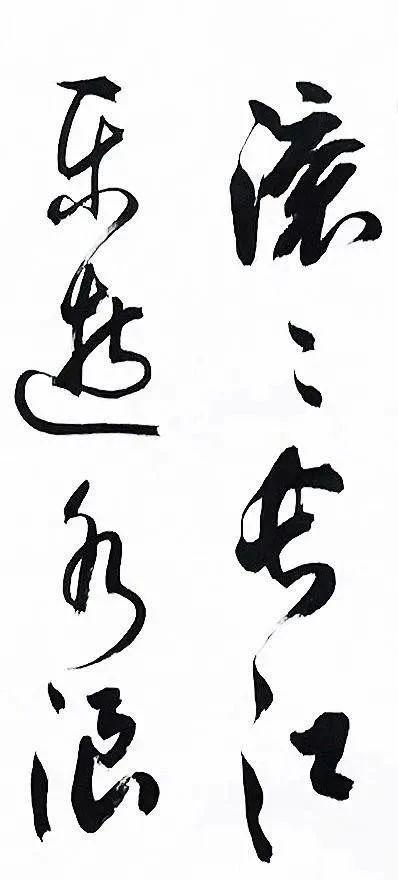 滚滚长江
东逝水浪